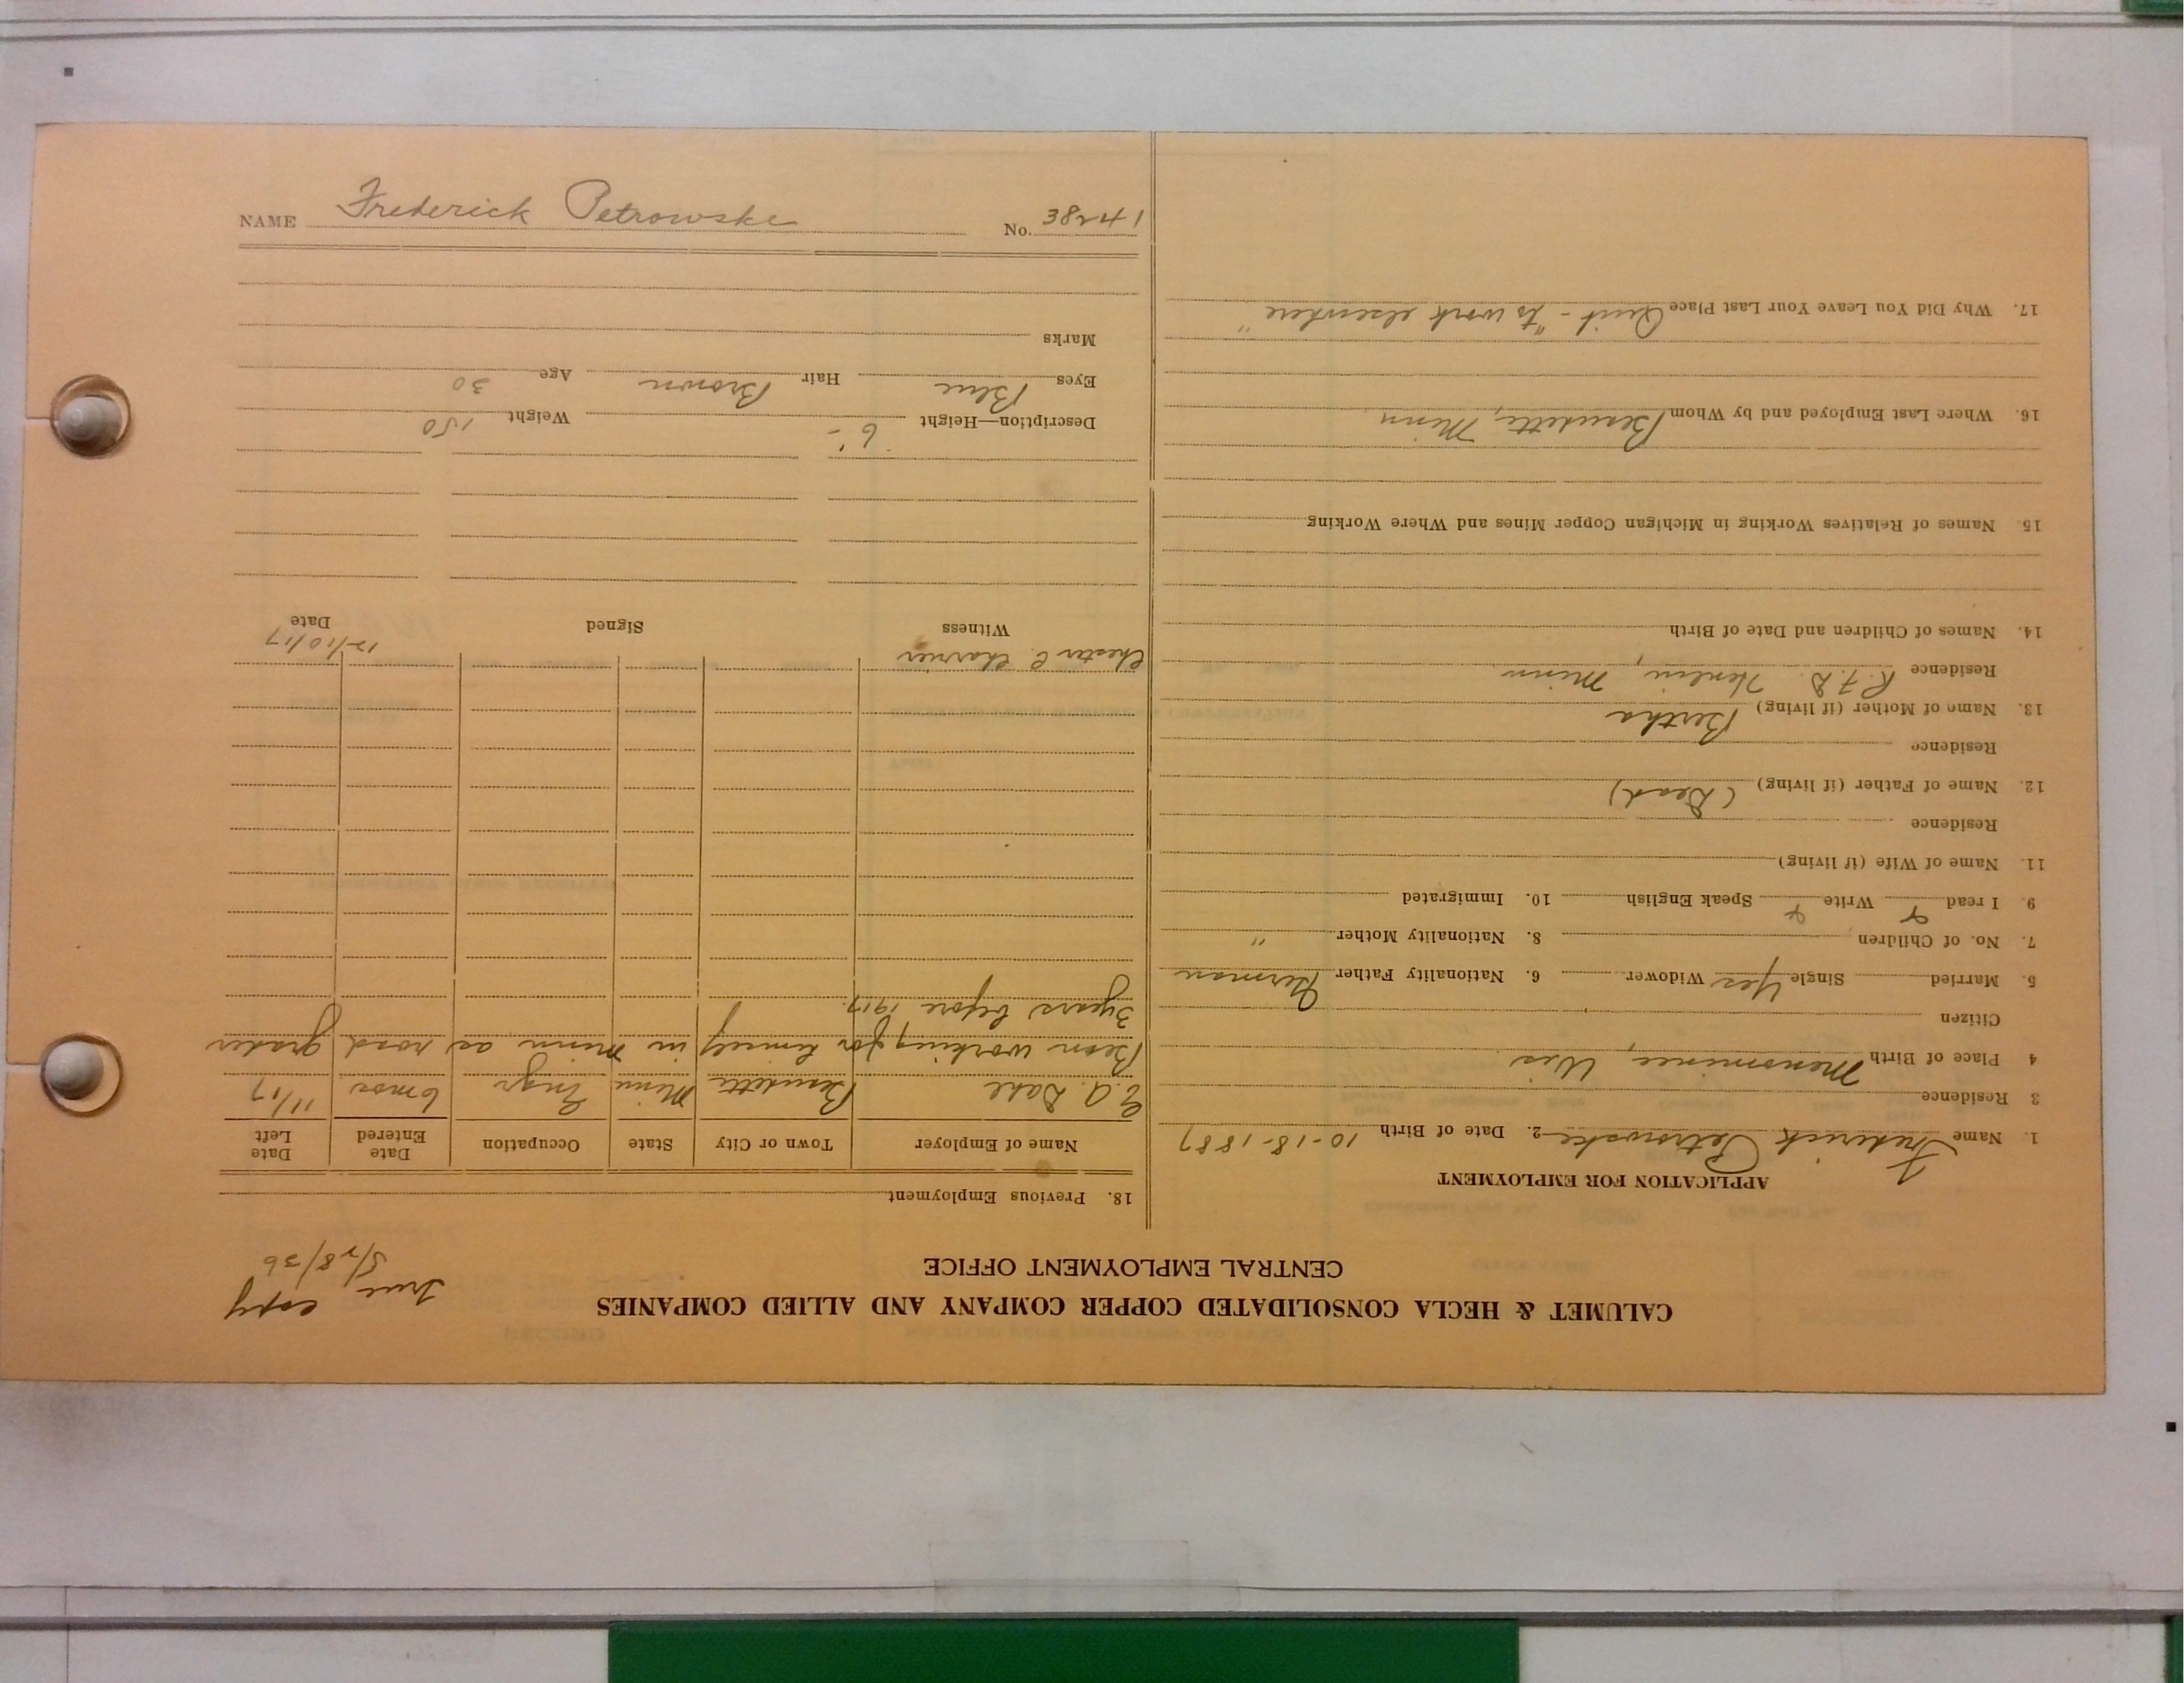 CALUMET & HECLA CONSOLIDATED COPPER COMPANY AND ALLIED COMPANIES
CENTRAL EMPLOYMENT OFFICE
True copy
5/28/36
APPLICATION FOR EMPLOYMENT
1. Name Frederick Petrowske 2. Date of Birth 10-18-1887
3 Residence
4 Place of Birth Menominee, Wis
Citizen
5. Married Single Yes Widower 6. Nationality Father German
7. No. of Children 8. Nationality Mother "
9. I read Write Speak English 10. Immigrated
11. Name of Wife (if living)
Residence
12. Name of Father (if living) (Dead)
Residence
13. Name of Mother (if living) Bertha
Residence R.F.D. Minn
14. Names of Children and Date of Birth
15. Names of Relatives Working in Michigan Copper Mines and Where Working
16. Where Last Employed and by Whom Beaudette, Minn
17. Why Did You Leave Your Last Place Quit - "to work elsewhere"
18. Previous Employment
Name of Employer Town or City State Occupation Date Entered Date Left
E. A. Dahl Beaudette Minn Engr 6 mos 11/17
Been working for himself in Minn as road grader
3 years before 1917
Chester C. Charrier 12/10/17
Witness Signed Date
Description—Height 6'- Weight 150
Eyes Blue Hair Brown Age 30
Marks
NAME Frederick Petrowske No. 14283